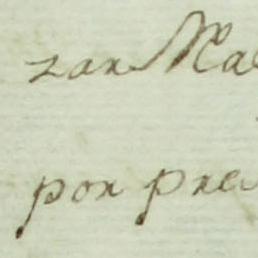 zar Ma
por pre